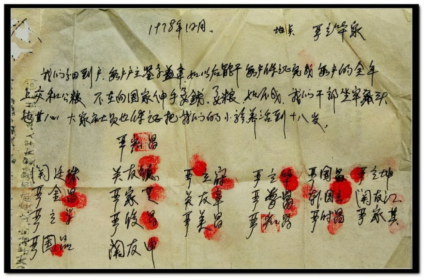 1978年12月 地点 严立华家
我们分田到户，每户户主签字盖章，如以后能干，每户保证完成每户的全年
上交和公粮，不在向国家伸手要钱要粮，如不成，我们干部坐牢杀头
也甘心，大家社员也保证把我们的小孩养活到十八岁。
严宏昌
关廷珠 关友德 严立符 严立华 严国昌 严立坤
严金昌 严家芝 关友章 严学昌 韩国云 关友江
严立学 严俊昌 严美昌 严付昌 严家其
严国品 关友申